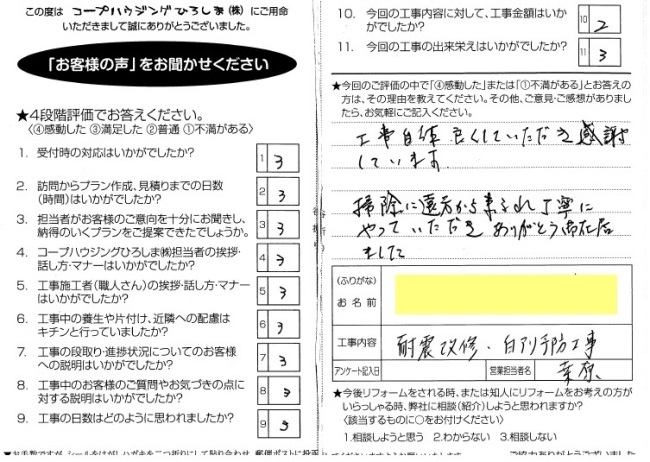 この度は コープハウジングひろしま(株) にご用命
いただきまして誠にありがとうございました。
「お客様の声」をお聞かせください
★4段階評価でお答えください。
〈④感動した ③満足した ②普通 ①不満がある〉
1. 受付時の対応はいかがでしたか?
1 3
2. 訪問からプラン作成、見積りまでの日数
(時間)はいかがでしたか?
2 3
3. 担当者がお客様のご意向を十分にお聞きし、
納得のいくプランをご提案できたでしょうか。
3 3
4. コープハウジングひろしま㈱担当者の挨拶・
話し方・マナーはいかがでしたか?
4 3
5. 工事施工者(職人さん)の挨拶・話し方・マナー
はいかがでしたか?
5 3
6. 工事中の養生や片付け、近隣への配慮は
キチンと行っていましたか?
6 3
7. 工事の段取り・進捗状況についてのお客様
への説明はいかがでしたか?
7 3
8. 工事中のお客様のご質問やお気づきの点に
対する説明はいかがでしたか?
8 3
9. 工事の日数はどのように思われましたか?
9 3
10. 今回の工事内容に対して、工事金額はいか
がでしたか?
10 2
11. 今回の工事の出来栄えはいかがでしたか?
11 3
★今回のご評価の中で「④感動した」または「①不満がある」とお答え
の方は、その理由を教えてください。その他、ご意見・ご感想がありまし
たら、お気軽にご記入ください。
工事自体 良くしていただき感謝
しています.
掃除に遠方から来られ丁寧に
やっていただき ありがとう
ました
(ふりがな)
お名前
工事内容
耐震改修・白アリ予防工事
アンケート記入日
営業担当者名
★今後リフォームをされる時、または知人にリフォームをお考えの方が
いらっしゃる時、弊社に相談(紹介)しようと思いますか?
〈該当するものに○をお付けください〉
1.相談しようと思う 2.わからない 3.相談しない